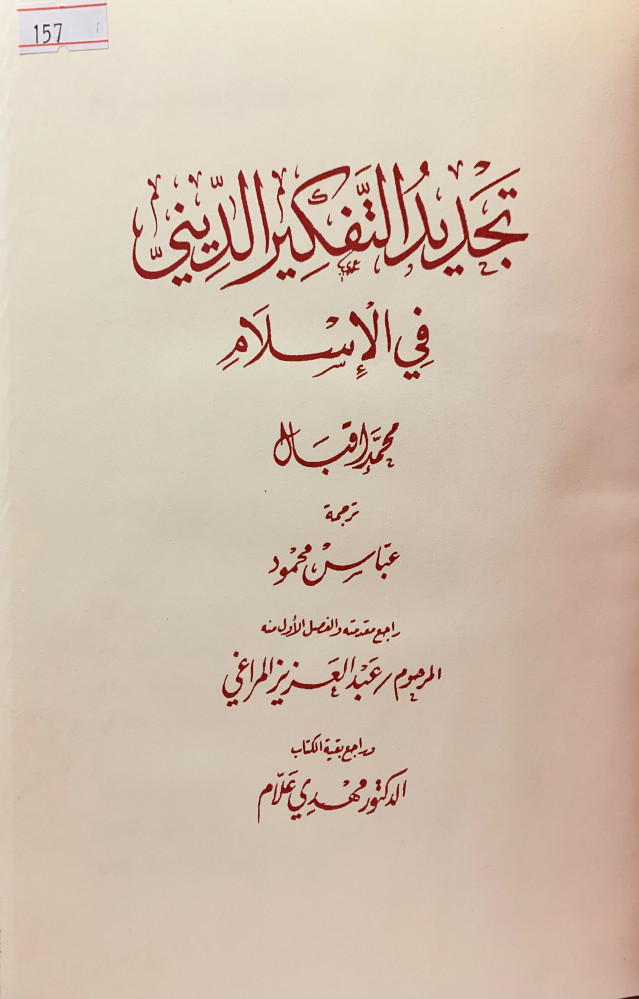 157
تَجْدِيدُ التَّفْكِيرِ الدِّينِيِّ
فِي الْإِسْلَامِ
محمَّد إقبَال
ترجمة
عبّاس محمُود
راجع مقدمته والفصل الأول منه
المرحوم / عَبْد العَزيز المراغي
وراجع بقية الكتاب
الدكتور مهدي علّام